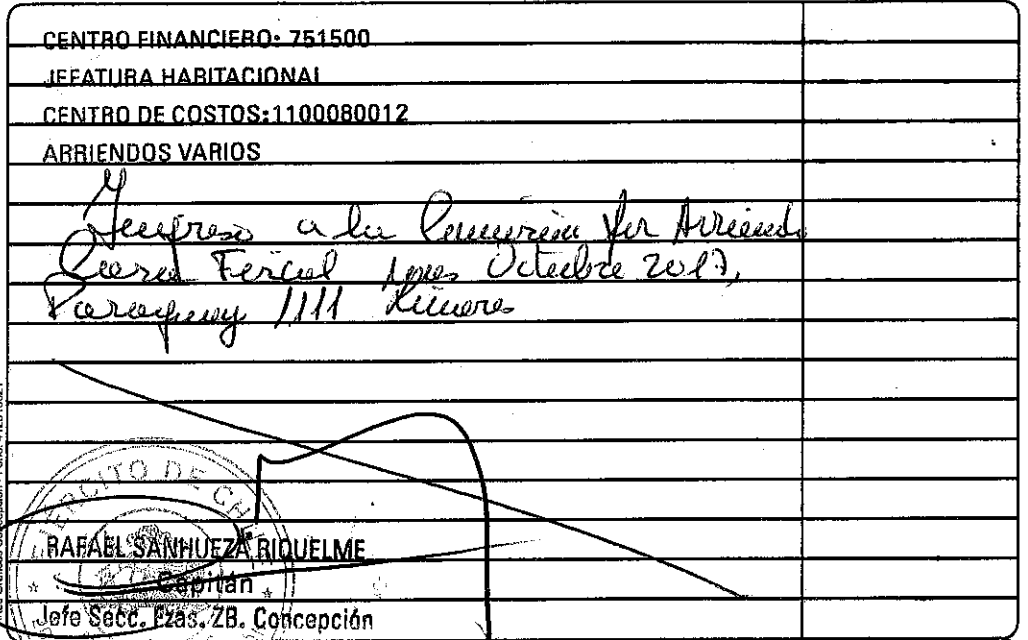 CENTRO FINANCIERO: 751500
JEFATURA HABITACIONAL
CENTRO DE COSTOS:1100080012
ARRIENDOS VARIOS
Ingreso a la Comisión por Arriendo
Casa Fiscal mes Octubre 2017,
Paraguay 1111 Linares
EJERCITO DE CHILE
RAFAEL SANHUEZA RIQUELME
Capitán
Jefe Secc. Fzas. ZB. Concepción